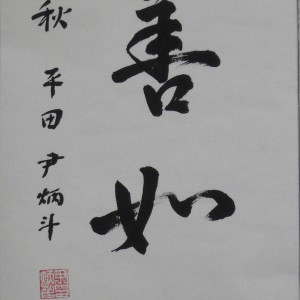 善如
秋 平田 尹炳斗